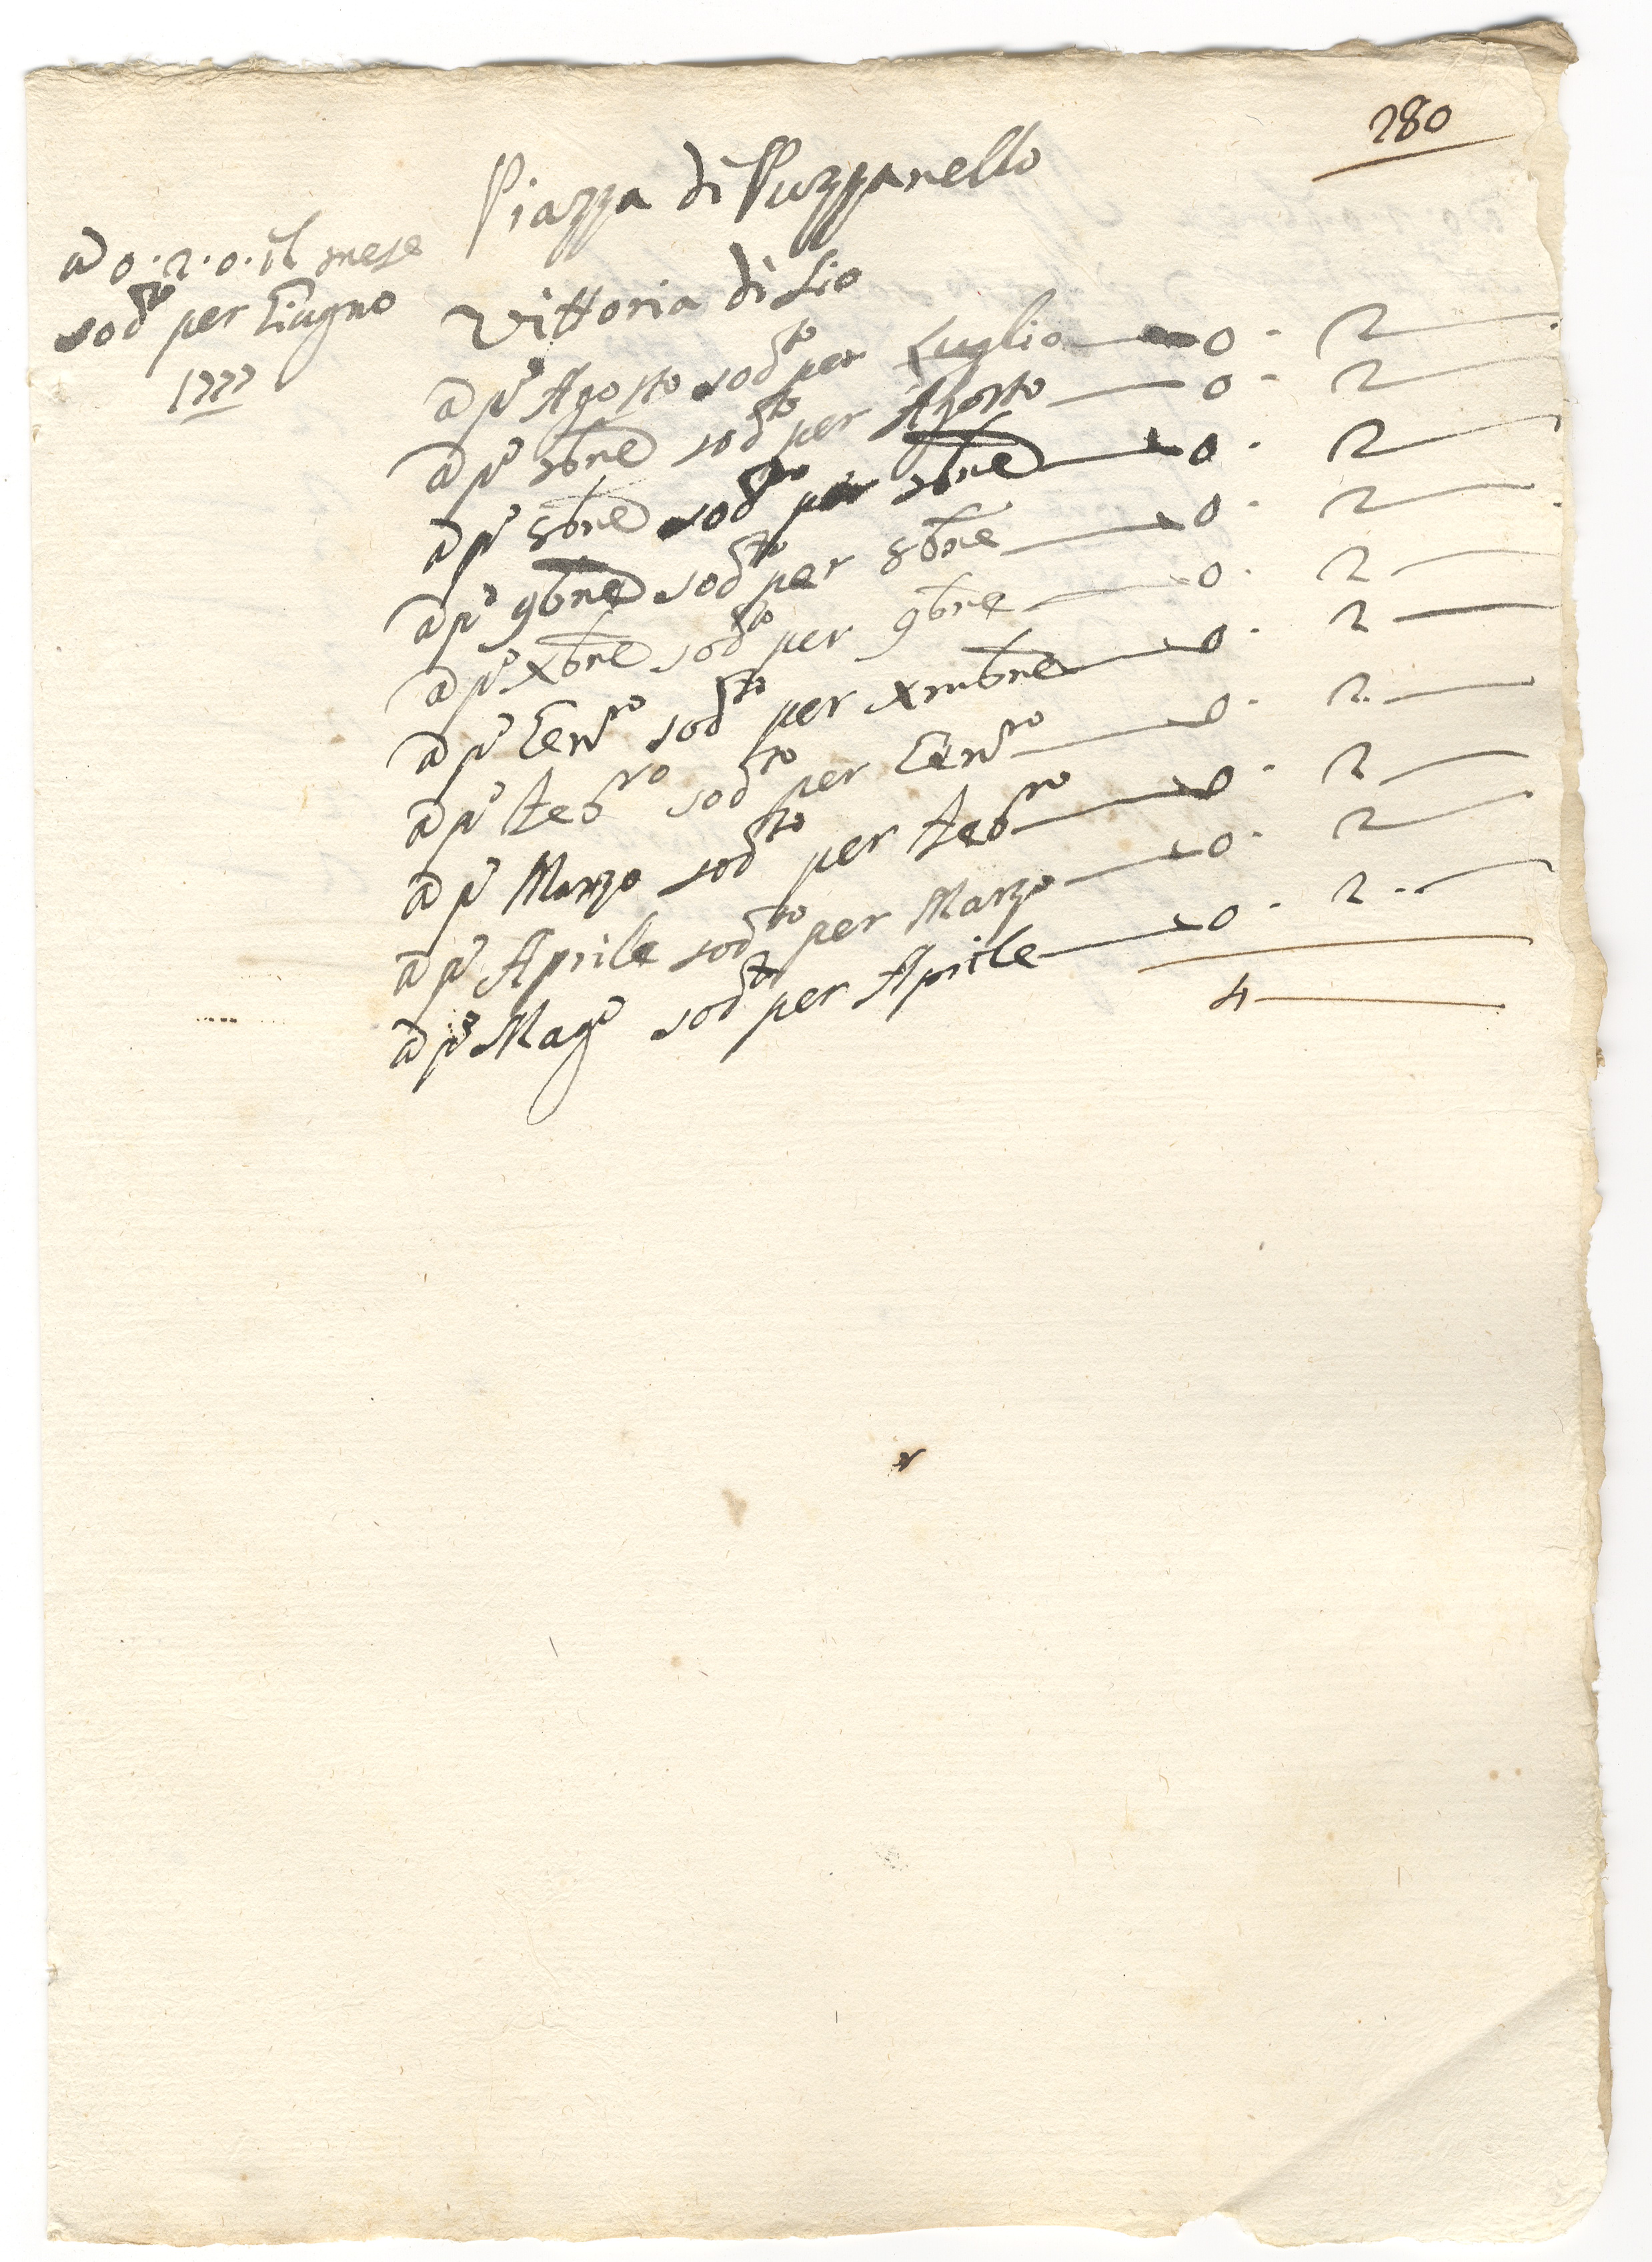 280
Piazza di Puzzanello
a 0.2.0. il mese
sodto per Giugno
1777
Vittoria di Lio
a po Agosto sodto per Luglio — 0 - 2 —
a po 7bre sodto per Agosto — 0 - 2 —
a po 8bre sodto per 7bre — 0 - 2 —
a po 9bre sodto per 8bre — 0 - 2 —
a po Xbre sodto per 9bre — 0 - 2 —
a po Genro sodto per Xmbre — 0 - 2 —
a po Febro sodto per Genro — 0 - 2 —
a po Marzo sodto per Febro — 0 - 2 —
a po Aprile sodto per Marzo — 0 - 2 —
a po Mago sodto per Aprile — 0 - 2 —
4 —